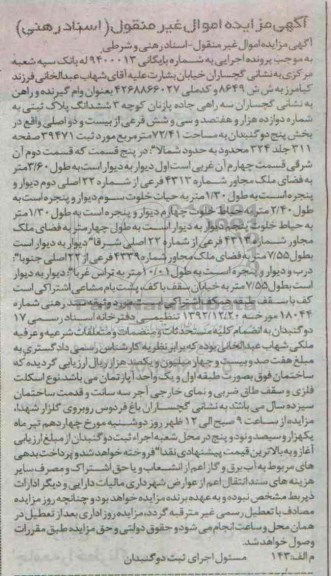 آگهی مزایده اموال غیر منقول (اسناد رهنی)
آگهی مزایده اموال غیر منقول - اسناد رهنی و شرطی
به موجب پرونده اجرایی به شماره بایگانی ۹۴۰۰۰۱۳ له بانک سپه شعبه
مرکزی به نشانی گچساران خیابان بشارت علیه آقای شهاب عبدالخانی فرزند
کیامرز به ش ش ۸۶۴۹ و کدملی ۴۲۶۸۸۶۶۰۲۷ بعنوان وام گیرنده و راهن
به نشانی گچساران سه راهی جاده پازنان کوچه ۲ ششدانگ پلاک ثبتی به
شماره دوازده هزار و هفتصد و سی و شش فرعی از بیست و دو اصلی واقع در
بخش پنج دوگنبدان به مساحت ۷۲/۴۱ مترمربع مورد ثبت ۳۹۴۷۱ صفحه
۳۱۱ جلد ۳۲۴ محدود به حدود شمالا: در پنج قسمت که قسمت دوم آن
شرقی قسمت چهارم آن غربی است اول دیوار به دیوار است به طول ۳/۶۰ متر
به فضای ملک مجاور شماره ۴۳۱۳ فرعی از شماره ۲۲ اصلی دوم دیوار و
پنجره است به طول ۱/۳۰ متر به حیاط خلوت سوم دیوار و پنجره است به
طول ۲/۴۰ متر به حیاط خلوت چهارم دیوار و پنجره است به طول ۱/۳۰ متر
به حیاط خلوت پنجم دیوار به دیوار است به طول چهار متر به فضای ملک
مجاور شماره ۴۳۱۴ فرعی از شماره ۲۲ اصلی شرقا" دیوار به دیوار است
بطول ۷/۵۵ متر به فضای ملک مجاور شماره ۴۳۳۹ فرعی از ۲۲ اصلی جنوبا":
درب و دیوار و پنجره است به طول ۱۰/۰۱ متر به تراس غربا": دیوار به دیوار
است بطول ۷/۵۵ متر به خیابان سقف با کف و پشت بام مشاعی اشتراکی است
کف با سقف طبقه همکف اشتراکی است مورد وثیقه سند رهنی شماره
۱۸۰۴۴ مورخه ۱۳۹۲/۱۲/۲۰ تنظیمی دفترخانه اسناد رسمی ۱۷
دوگنبدان به انضمام کلیه مستحدثات و منضمات و متعلقات شرعیه و عرفیه
ملکی شهاب عبدالخانی بوده که برابر نظریه کارشناس رسمی دادگستری به
مبلغ هفتصد و بیست و چهار میلیون و یکصد هزار ریال ارزیابی گردیده که
ساختمان فوق بصورت طبقه اول و یک واحد آپارتمان می باشد، نوع اسکلت
فلزی و سقف طاق ضربی و نمای خارجی آجر سه سانت و قدمت ساختمان
سیزده سال می باشد، به نشانی گچساران باغ فردوس روبروی گلزار شهدا،
مزایده از ساعت ۹ صبح الی ۱۲ ظهر روز دوشنبه مورخ چهاردهم تیر ماه
یکهزار و سیصد و نود و پنج در محل شعبه اجراء ثبت دوگنبدان از مبلغ ارزیابی
آغاز و به بالاترین قیمت پیشنهادی نقدا" فروخته خواهد شد و پرداخت بدهی
های مربوط به آب برق و گاز اعم از انشعاب و یا حق اشتراک و مصرف سایر
هزینه های سند انتقال اعم از عوارض شهرداری مالیات دارایی و دیگر ادارات
ذیربط مشخص نبوده و به عهده برنده مزایده خواهد بود و چنانچه روز مزایده
مصادف با تعطیل رسمی غیر مترقبه گردد، مزایده روز اداری بعد از تعطیل در
همان محل و ساعت انجام می شود و حقوق دولتی و حق مزایده طبق مقررات
وصول خواهد شد.
م الف: ۱۴۳ مسئول اجرای ثبت دوگنبدان